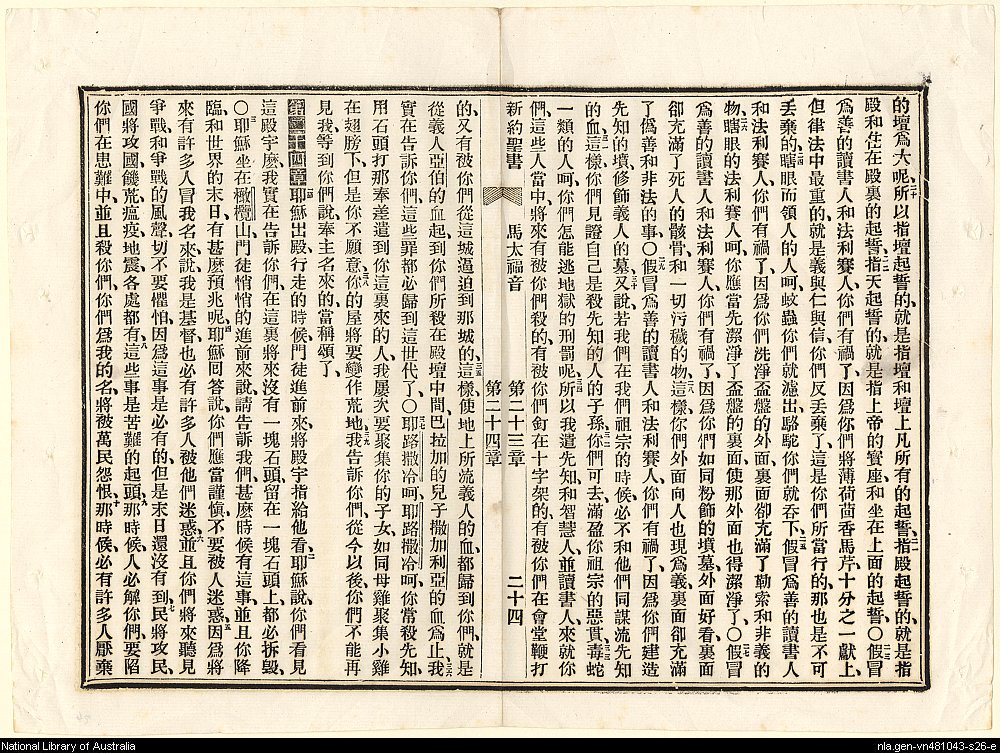 的壇爲大呢、二十所以指壇起誓的、就是指壇和壇上凡所有的起誓、二一指殿起誓的、就是指
殿和住在殿裏的起誓、二二指天起誓的、就是指上帝的寶座和坐在上面的起誓、〇二三假冒
爲善的讀書人和法利賽人、你們有禍了、因爲你們將薄荷茴香馬芹、十分之一獻上、
但律法中最重的、就是義與仁與信、你們反丟棄了、這是你們所當行的、那也是不可
丟棄的、二四瞎眼而領人的人呵、蚊蟲你們就濾出、駱駝你們就吞下、二五假冒爲善的讀書人
和法利賽人、你們有禍了、因爲你們洗淨盃盤的外面、裏面卻充滿了勒索和非義的
物、二六瞎眼的法利賽人呵、你應當先潔淨了盃盤的裏面、使那外面也得潔淨了、〇二七假冒
爲善的讀書人和法利賽人、你們有禍了、因爲你們如同粉飾的墳墓、外面好看、裏面
卻充滿了死人的骸骨、和一切污穢的物、二八這樣、你們外面向人也現爲義、裏面卻充滿
了僞善和非法的事、〇二九假冒爲善的讀書人和法利賽人、你們有禍了、因爲你們建造
先知的墳、修飾義人的墓、三十又說、若我們在我們祖宗的時候、必不和他們同謀流先知
的血、三一這樣你們見證自己是殺先知的人的子孫、三二你們可去滿盈你祖宗的惡貫、三三毒蛇
一類的人呵、你們怎能逃地獄的刑罰呢、三四所以我遣先知和智慧人、並讀書人來就你
們、這些人當中、將來有被你們殺的、有被你們釘在十字架的、有被你們在會堂鞭打
新約聖書 馬太福音 第二十三章 二十四
第二十四章
的、又有被你們從這城逼迫到那城的、三五這樣、使地上所流義人的血、都歸到你們、就是
從義人亞伯的血起、到你們所殺在殿壇中間、巴拉加的兒子撒加利亞的血爲止、三六我
實在告訴你們、這些罪都必歸到這世代了、〇三七耶路撒冷呵、耶路撒冷呵、你常殺先知、
用石頭打那奉差遣到你這裏來的人、我屢次要聚集你的子女、如同母雞聚集小雞
在翅膀下、但是你不願意、三八你的屋將要變作荒地、三九我告訴你們、從今以後、你們不能再
見我、等到你們說、奉主名來的、當稱頌了、
第二十四章 耶穌出殿行走的時候、門徒進前來、將殿宇指給他看、二耶穌說、你們看見
這殿宇麽、我實在告訴你們、在這裏將來沒有一塊石頭、留在一塊石頭上、都必拆毀、
〇三耶穌坐在橄欖山、門徒悄悄的進前來說、請告訴我們、甚麽時候有這事、並且你降
臨和世界的末日、有甚麽預兆呢、四耶穌回答說、你們應當謹慎、不要被人迷惑、五因爲將
來有許多人冒我名來、說我是基督、也必有許多人被他們迷惑、六並且你們將來聽見
爭戰和爭戰的風聲、切不要懼怕、因爲這事是必有的、但是末日還沒有到、七民將攻民、
國將攻國、饑荒、瘟疫、地震、各處都有、八這些事是苦難的起頭、九那時候、人必解你們、要陷
你們在患難中、並且殺你們、你們爲我的名、將被萬民怨恨、十那時候、必有許多人厭棄
National Library of Australia
nla.gen-vn481043-s26-e